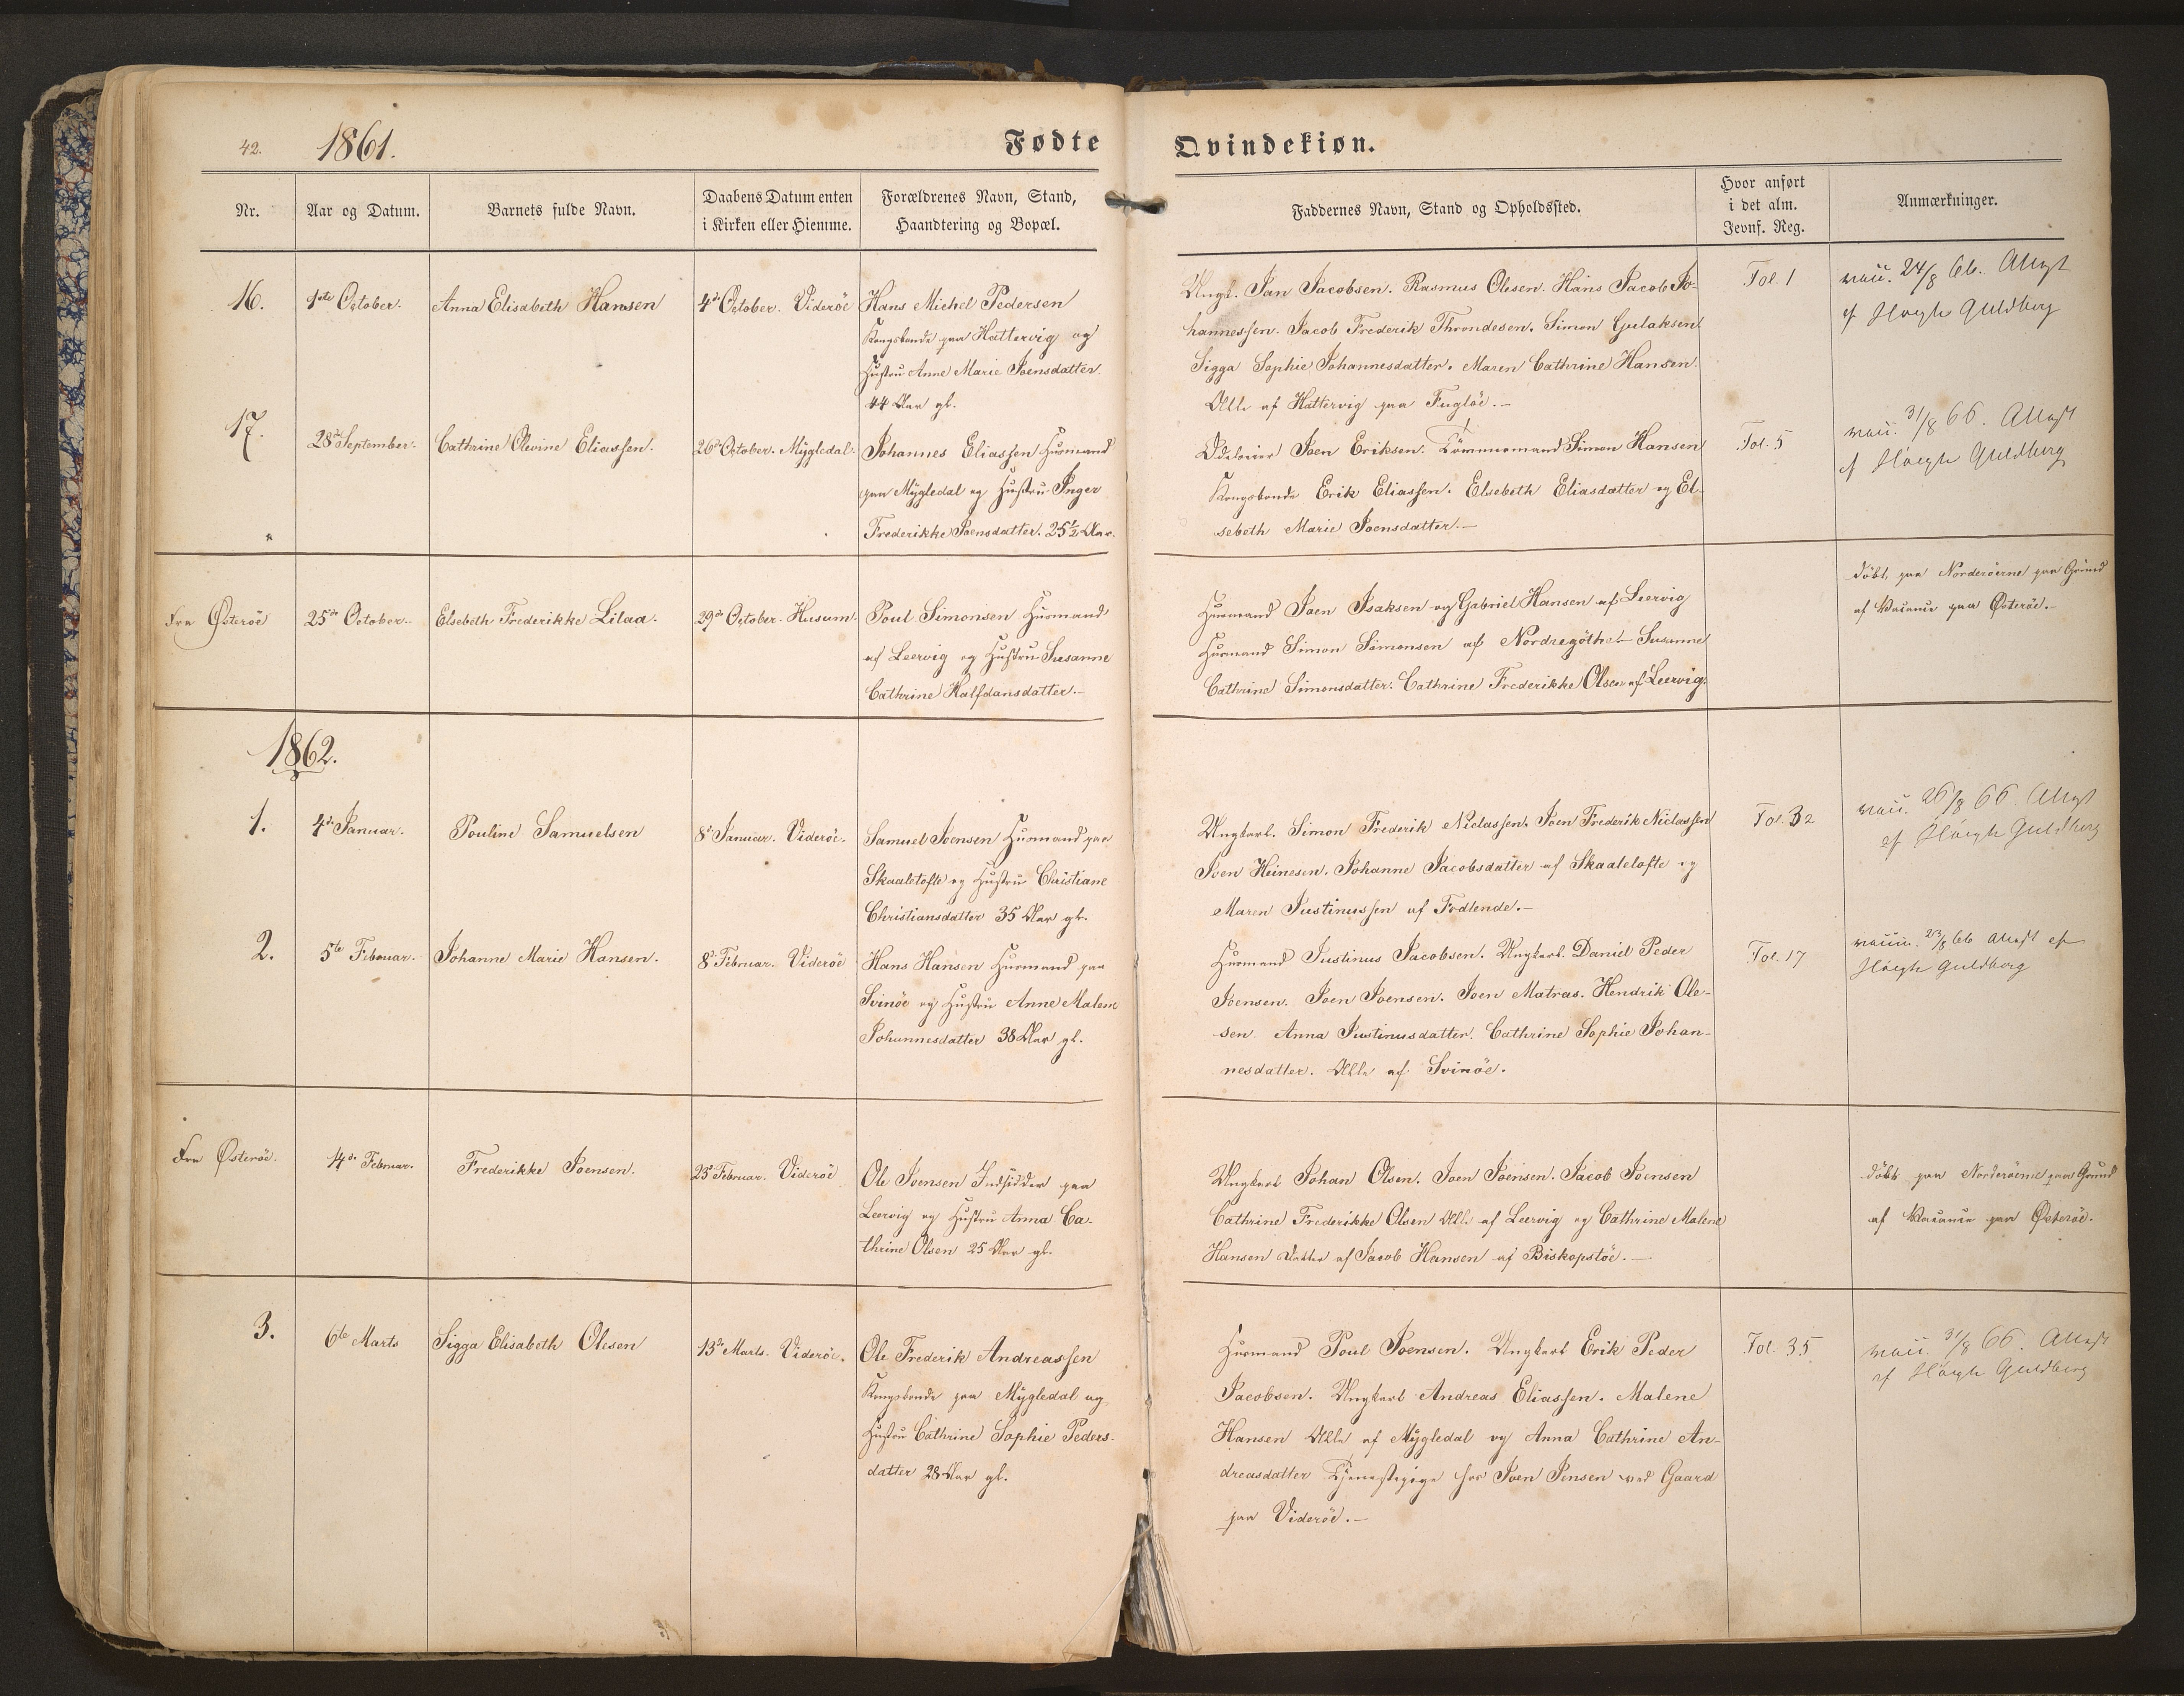 42. 1861. Fødte
Nr. Aar og Datum. Barnets fulde Navn. Daabens Datum enten i Kirken eller Hiemme. Forældrenes Navn, Stand, Haandtering og Bopæl.
16. 1ste October. Anna Elisabeth Hansen 4de October. Viderøe Hans Michel Pedersen
Kongsbonde paa Hattervig og
Hustru Anne Marie Joensdatter.
44 Aar gl.
17. 28de September. Cathrine Olevine Eliassen. 26de October. Mygledal. Johannes Eliassen Huusmand
paa Mygledal og Hustru Inger
Frederikke Joensdatter. 25½ Aar.
Fra Østerøe 25de October. Elsebeth Frederikke Lilaa. 29de October. Husum. Poul Simonsen Huusmand
af Leervig og Hustru Susanne
Cathrine Halfdansdatter.-
1862.
1. 4de Januar. Pouline Samuelsen 8de Januar. Viderøe. Samuel Joensen Huusmand paa
Skaaletofte og Hustru Christiane
Christiansdatter 35 Aar gl.
2. 5te Februar. Johanne Marie Hansen. 8de Februar. Viderøe Hans Hansen Huusmand paa
Svinøe og Hustru Anne Malene
Johannesdatter 38 Aar gl.
Fra Østerøe. 14de Februar. Frederikke Joensen. 23de Februar. Viderøe Ole Joensen Indsidder paa
Leervig og Hustru Anna Ca-
thrine Olsen 25 Aar gl.
3. 6te Marts Sigga Elisabeth Olesen 13de Marts. Viderøe. Ole Frederik Andreassen
Kongsbonde paa Mygledal og
Hustru Cathrine Sophie Peders-
datter 28 Aar gl.
Qvindekiøn.
Faddernes Navn, Stand og Opholdssted. Hvor anført i det alm. Jevnf. Reg. Anmærkninger.
Ungk. Jan Jacobsen. Rasmus Olesen. Hans Jacob Jo- Fol. 1 vacc. 24/8 66. Attest
hannessen. Jacob Frederik Throndesen. Simon Gulaksen af Høegh Guldberg
Sigga Sophie Johannesdatter. Maren Cathrine Hansen.
Alle af Hattervig paa Fugløe.-
Odelseier Joen Eriksen. Simon Hansen Fol. 5 vacc. 31/8 66. Attest
Kongsbonde Erik Eliassen. Elsebeth Eliasdatter og El- af Høegh Guldberg
sebeth Marie Joensdatter.-
Huusmand Joen Isaksen og Gabriel Hansen af Leervig døbt paa Norderøerne paa Grund
Huusmand Simon Simonsen af Nordregøthe Susanne af Vacance paa Østerøe.-
Cathrine Simonsdatter. Cathrine Frederikke Olsen af Leervig.
Ungkarl. Simon Frederik Niclassen. Joen Frederik Niclassen Fol. 32 vacc. 26/8 66. Attest
Joen Heinesen. Johanne Jacobsdatter af Skaaletofte og af Høegh Guldberg
Maren Justinussen af Fodlende.-
Huusmand Justinus Jacobsen. Ungkarl. Daniel Peder Fol. 17 vacc. 23/8 66 Attest af
Joensen. Joen Joensen. Joen Matras. Hendrik Ole- Høegh Guldberg
sen. Anna Justinusdatter. Cathrine Sophie Johan-
nesdatter. Alle af Svinøe.
Ungkarl Johan Olsen. Joen Joensen. Jacob Joensen døbt paa Norderøerne paa Grund
Cathrine Frederikke Olsen Alle af Leervig og Cathrine Malene af Vacance paa Østerøe.
Hansen Datter af Jacob Hansen af Biskopstøe.-
Huusmand Poul Joensen. Ungkarl Erik Peder Fol. 35 vacc. 31/8 66. Attest
Jacobsen. Ungkarl Andreas Eliassen. Malene af Høegh Guldberg
Hansen Alle af Mygledal og Anna Cathrine An-
dreasdatter Tjenestepige hos Joen Jensen ved Gaard
paa Viderøe.-